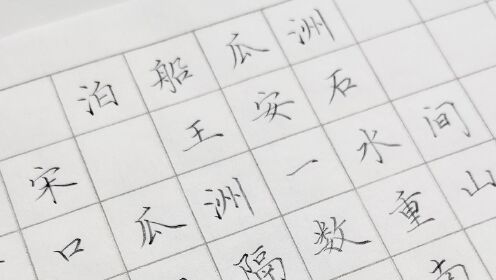 泊船瓜洲
宋 王安石
口瓜洲一水间
隔数重山